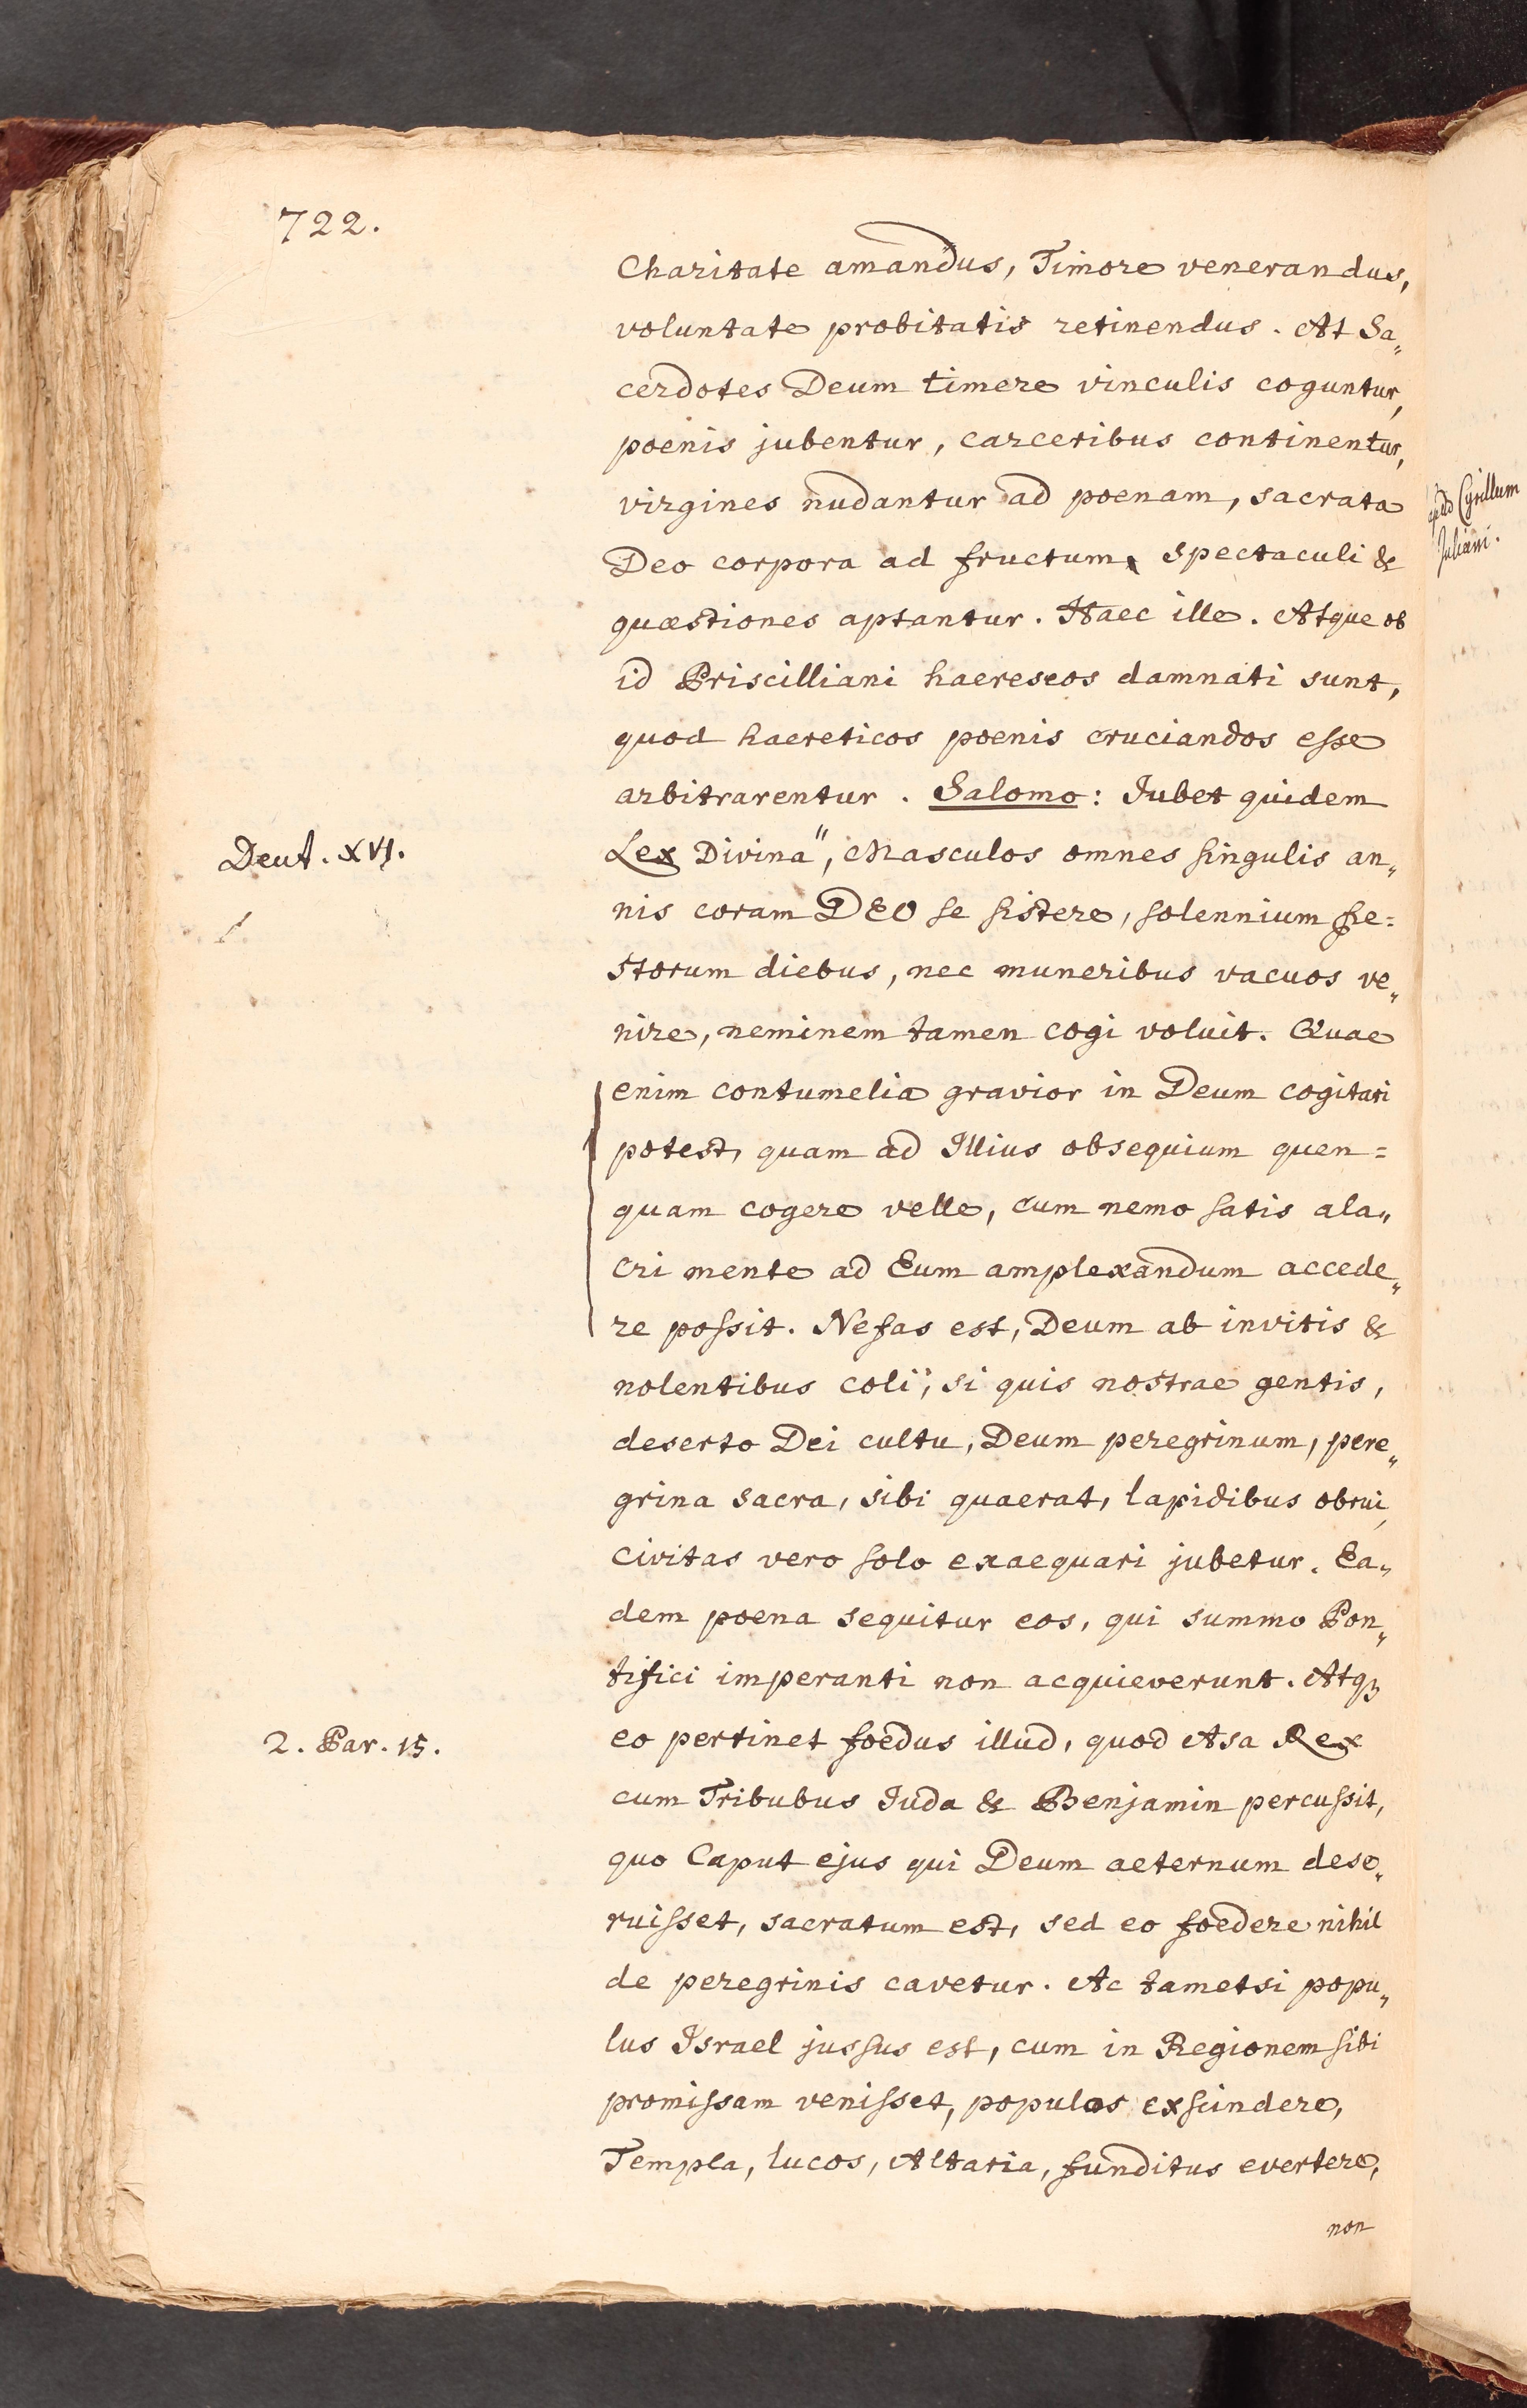 722.
Charitate amandus, Timore venerandus,
voluntate probitatis retinendus. At Sa„
cerdotes Deum timere vinculis coguntur,
poenis jubentur, carceribus continentur,
virgines nudantur ad poenam, sacrata
Deo corpora ad fructum, spectaculi &
quæstiones aptantur. Haec ille. Atque ob
id Priscilliani haereseos damnati sunt,
quod haereticos poenis cruciandos esse
arbitrarentur. Salomo: Jubet quidem
Deut. XVI.
Lex Divina", Masculos omnes singulis an„
nis coram DEO se sistere, solennium fe=
storum diebus, nec muneribus vacuos ve„
nire, neminem tamen cogi voluit. Quae
enim contumelia gravior in Deum cogitari
potest, quam ad Illius obsequium quen=
quam cogere velle, cum nemo satis ala„
cri mente ad Eum amplexandum accede„
re possit. Nefas est, Deum ab invitis &
nolentibus coli, si quis nostrae gentis,
deserto Dei cultu, Deum peregrinum, pere„
grina sacra, sibi quaerat, lapidibus obrui,
civitas vero solo exaequari jubetur. Ea„
dem poena sequitur eos, qui summo Pon„
tifici imperanti non acquieverunt. Atqꝫ
2. Par. 15.
eo pertinet foedus illud, quod Asa Rex
cum Tribubus Juda & Benjamin percussit,
quo Caput ejus qui Deum aeternum dese„
ruisset, sacratum est, sed eo foedere nihil
de peregrinis cavetur. Ac tametsi popu„
lus Israel jussus est, cum in Regionem sibi
promissam venisset, populos exscindere,
Templa, lucos, Altaria, funditus evertere,
non
apud Cyrillum
Juliani.